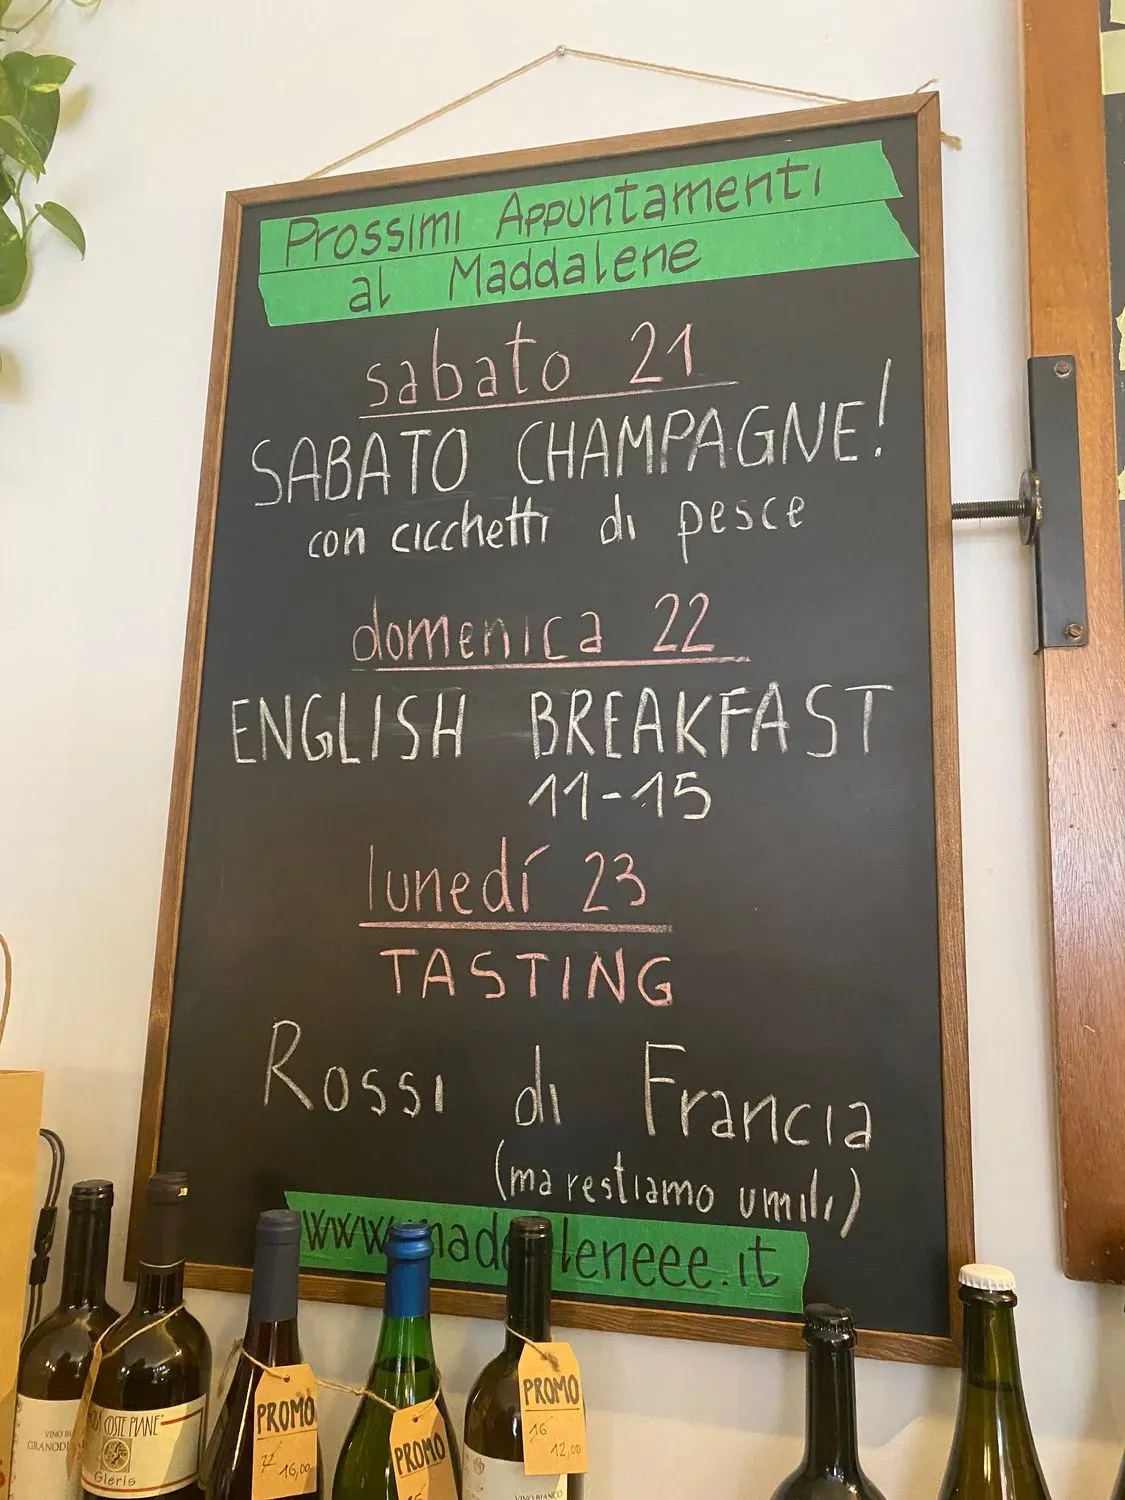 Prossimi Appuntamenti
al Maddalene
sabato 21
SABATO CHAMPAGNE!
con cicchetti di pesce
domenica 22
ENGLISH BREAKFAST
11-15
lunedí 23
TASTING
Rossi di Francia
(ma restiamo umili)
leneee.it
COSTE PIANE"
Gleris
PROMO
22 16,00
PROMO
PROMO
16
12,00
VINO BIANCO